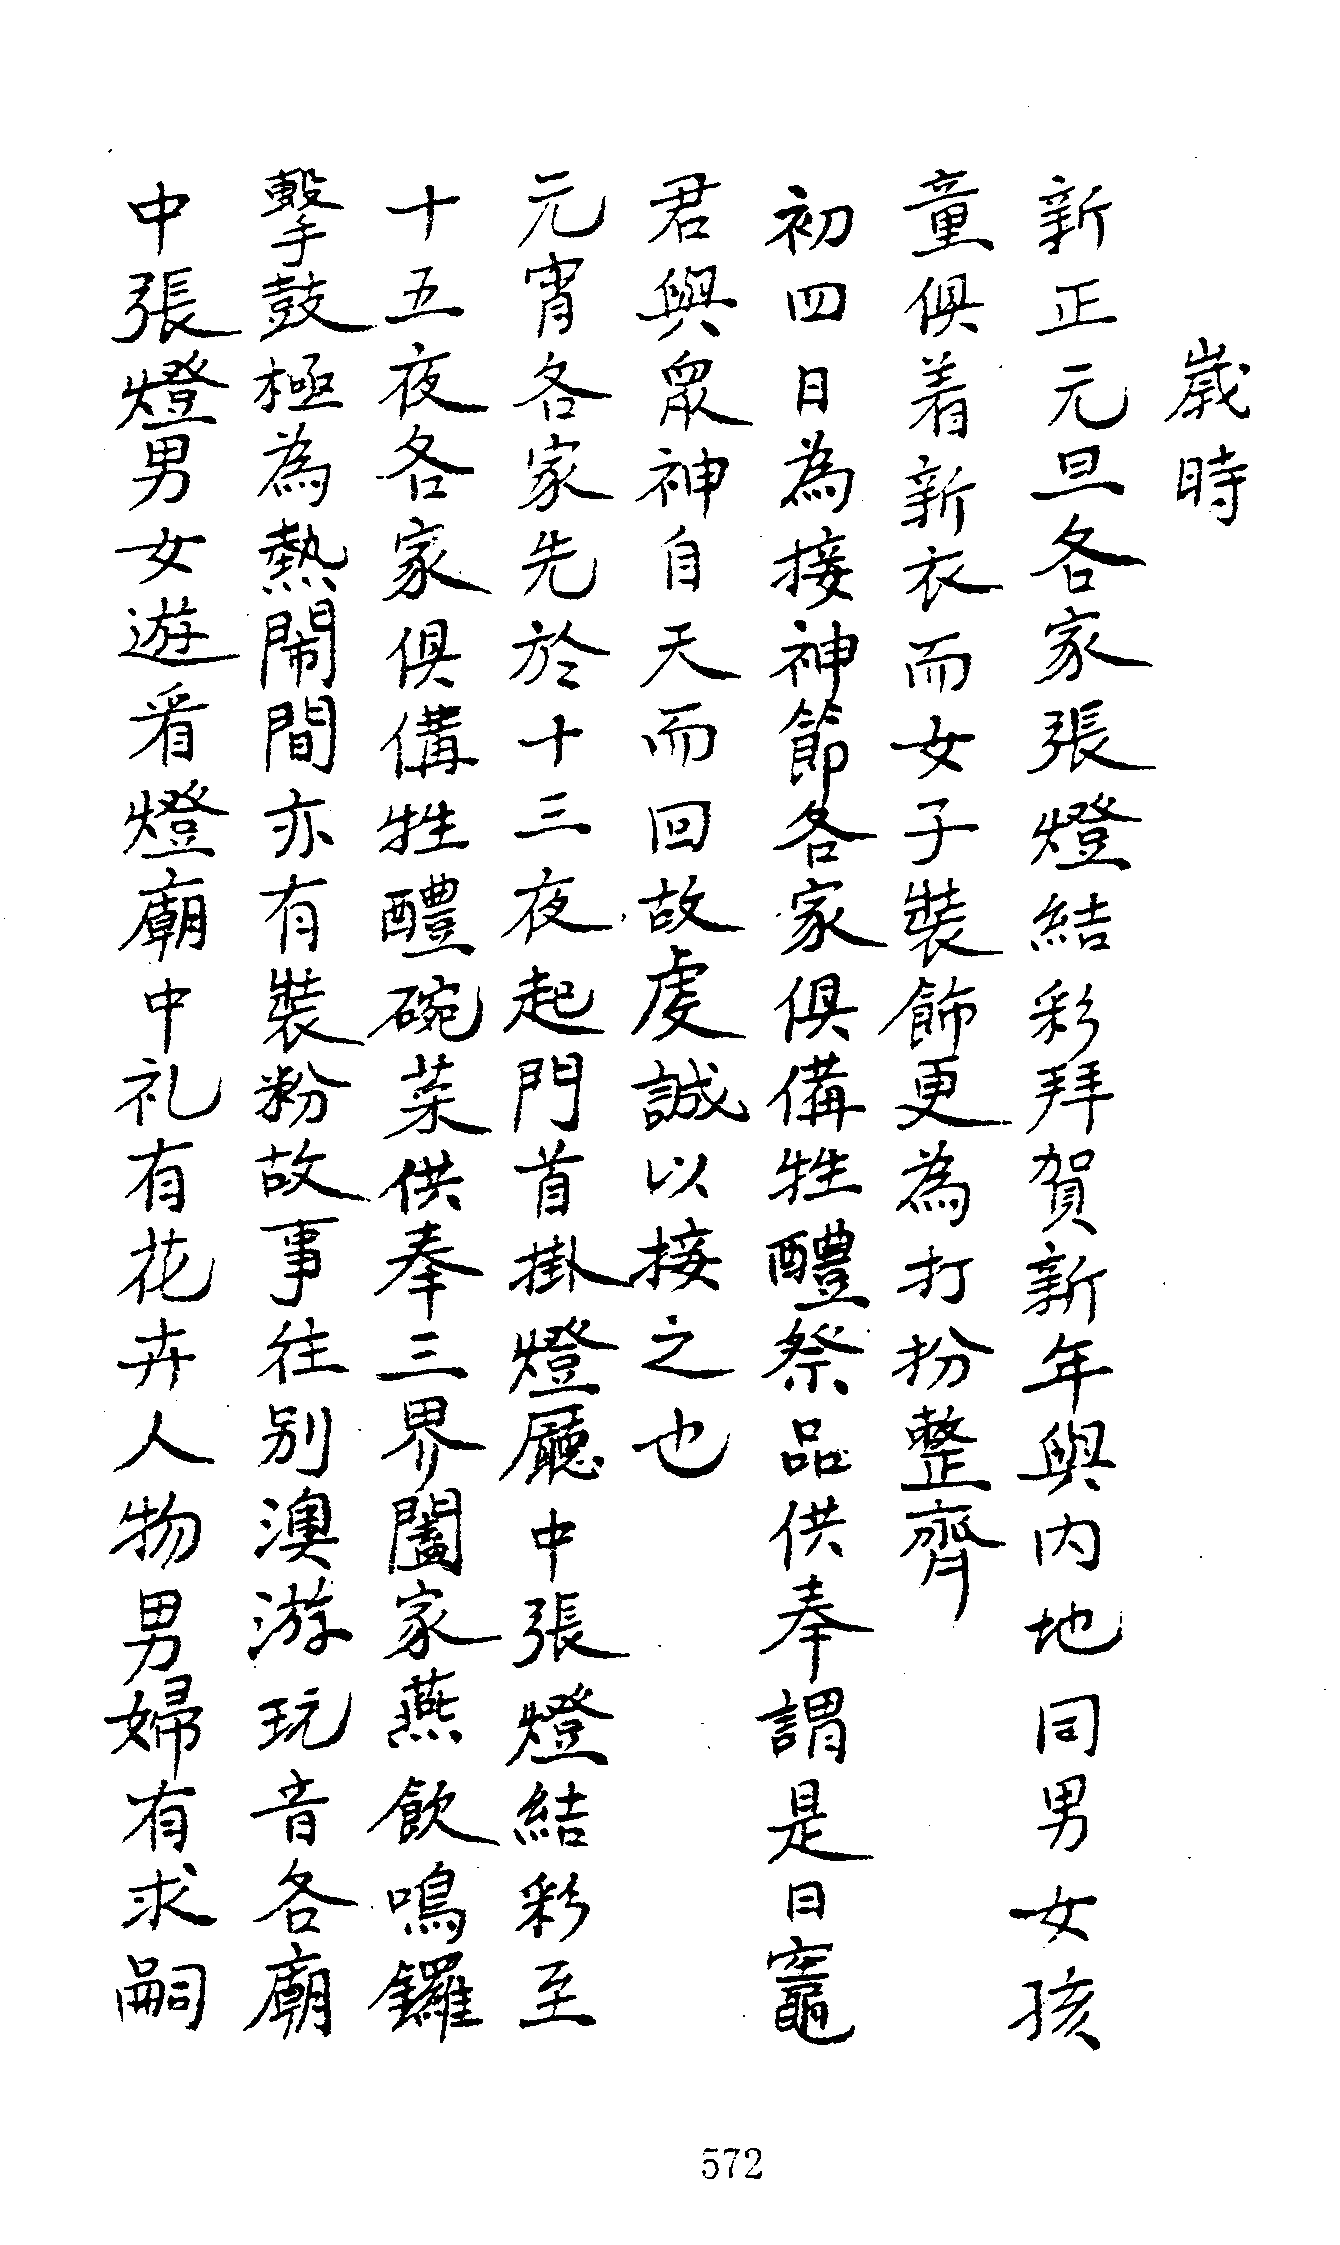 歲時
新正元旦各家張燈結彩拜賀新年與內地同男女孩
童俱着新衣而女子裝飾更為打扮整齊
初四日為接神節各家俱備牲醴祭品供奉謂是日竈
君與眾神自天而回故虔誠以接之也
元宵各家先於十三夜起門首掛燈廳中張燈結彩至
十五夜各家俱備牲醴碗菜供奉三界闔家燕飲鳴鑼
擊鼓極為熱鬧間亦有裝粉故事往别澳游玩音各廟
中張燈男女遊看燈廟中礼有花卉人物男婦有求嗣
572